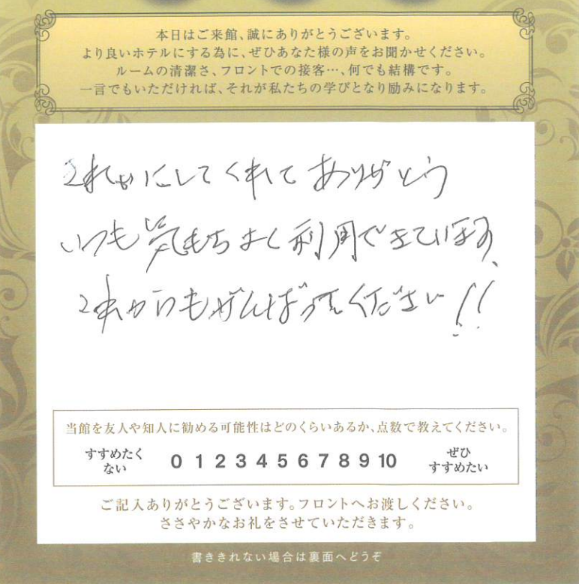 本日はご来館、誠にありがとうございます。
より良いホテルにする為に、ぜひあなた様の声をお聞かせください。
ルームの清潔さ、フロントでの接客…、何でも結構です。
一言でもいただければ、それが私たちの学びとなり励みになります。
にしてくれてありがとう
いつも気もちよく利用できています、
これからもがんばってください!!
当館を友人や知人に勧める可能性はどのくらいあるか、点数で教えてください。
すすめたくない 0 1 2 3 4 5 6 7 8 9 10 ぜひすすめたい
ご記入ありがとうございます。フロントへお渡しください。
ささやかなお礼をさせていただきます。
書ききれない場合は裏面へどうぞ